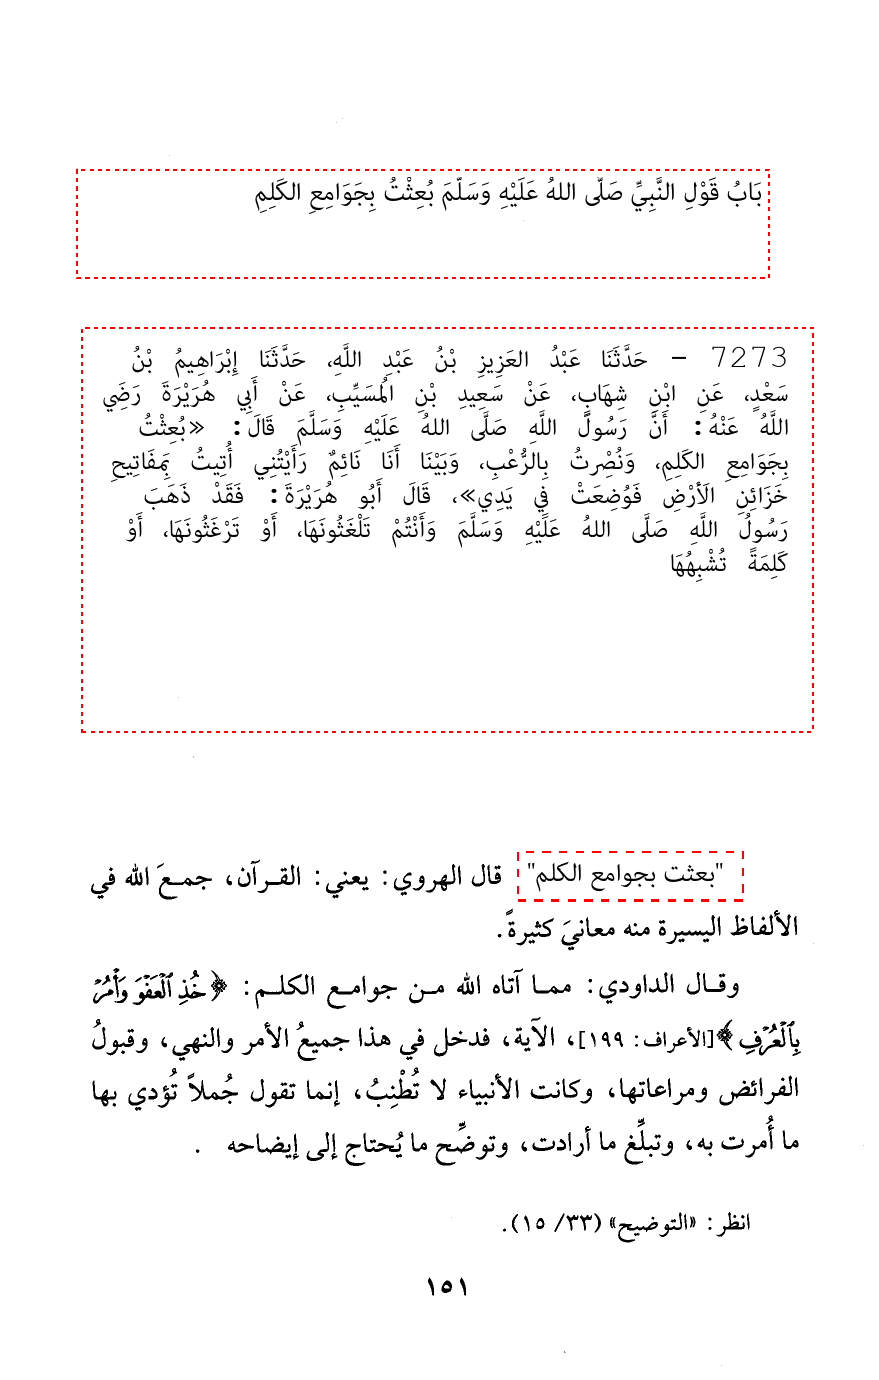 بَابُ قَوْلِ النَّبِيِّ صَلَّى اللهُ عَلَيْهِ وَسَلَّمَ بُعِثْتُ بِجَوَامِعِ الكَلِمِ
7273 - حَدَّثَنَا عَبْدُ العَزِيزِ بْنُ عَبْدِ اللَّهِ، حَدَّثَنَا إِبْرَاهِيمُ بْنُ
سَعْدٍ، عَنِ ابْنِ شِهَابٍ، عَنْ سَعِيدِ بْنِ المُسَيِّبِ، عَنْ أَبِي هُرَيْرَةَ رَضِيَ
اللَّهُ عَنْهُ: أَنَّ رَسُولَ اللَّهِ صَلَّى اللهُ عَلَيْهِ وَسَلَّمَ قَالَ: «بُعِثْتُ
بِجَوَامِعِ الكَلِمِ، وَنُصِرْتُ بِالرُّعْبِ، وَبَيْنَا أَنَا نَائِمٌ رَأَيْتُنِي أُتِيتُ بِمَفَاتِيحِ
خَزَائِنِ الأَرْضِ فَوُضِعَتْ فِي يَدِي»، قَالَ أَبُو هُرَيْرَةَ: فَقَدْ ذَهَبَ
رَسُولُ اللَّهِ صَلَّى اللهُ عَلَيْهِ وَسَلَّمَ وَأَنْتُمْ تَلْغَثُونَهَا، أَوْ تَرْغَثُونَهَا، أَوْ
كَلِمَةً تُشْبِهُهَا
"بعثت بجوامع الكلم" قال الهروي: يعني: القرآن، جمعَ الله في
الألفاظ اليسيرة منه معانيَ كثيرةً.
وقال الداودي: مما آتاه الله من جوامع الكلم: ﴿خُذِ ٱلْعَفْوَ وَأْمُرْ
بِٱلْعُرْفِ﴾[الأعراف: ١٩٩]، الآية، فدخل في هذا جميعُ الأمر والنهي، وقبولُ
الفرائض ومراعاتها، وكانت الأنبياء لا تُطْنِبُ، إنما تقول جُملاً تُؤدي بها
ما أُمرت به، وتبلِّغ ما أرادت، وتوضِّح ما يُحتاج إلى إيضاحه .
انظر: «التوضيح» (٣٣/ ١٥).
١٥١